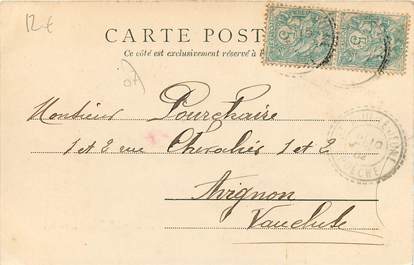 12€
CARTE POST
Ce côté est exclusivement réservé à
07
Monsieur Pourchaire
1 et 2 rue Chevaliés 1 et 2
Avignon
Vaucluse
5 5